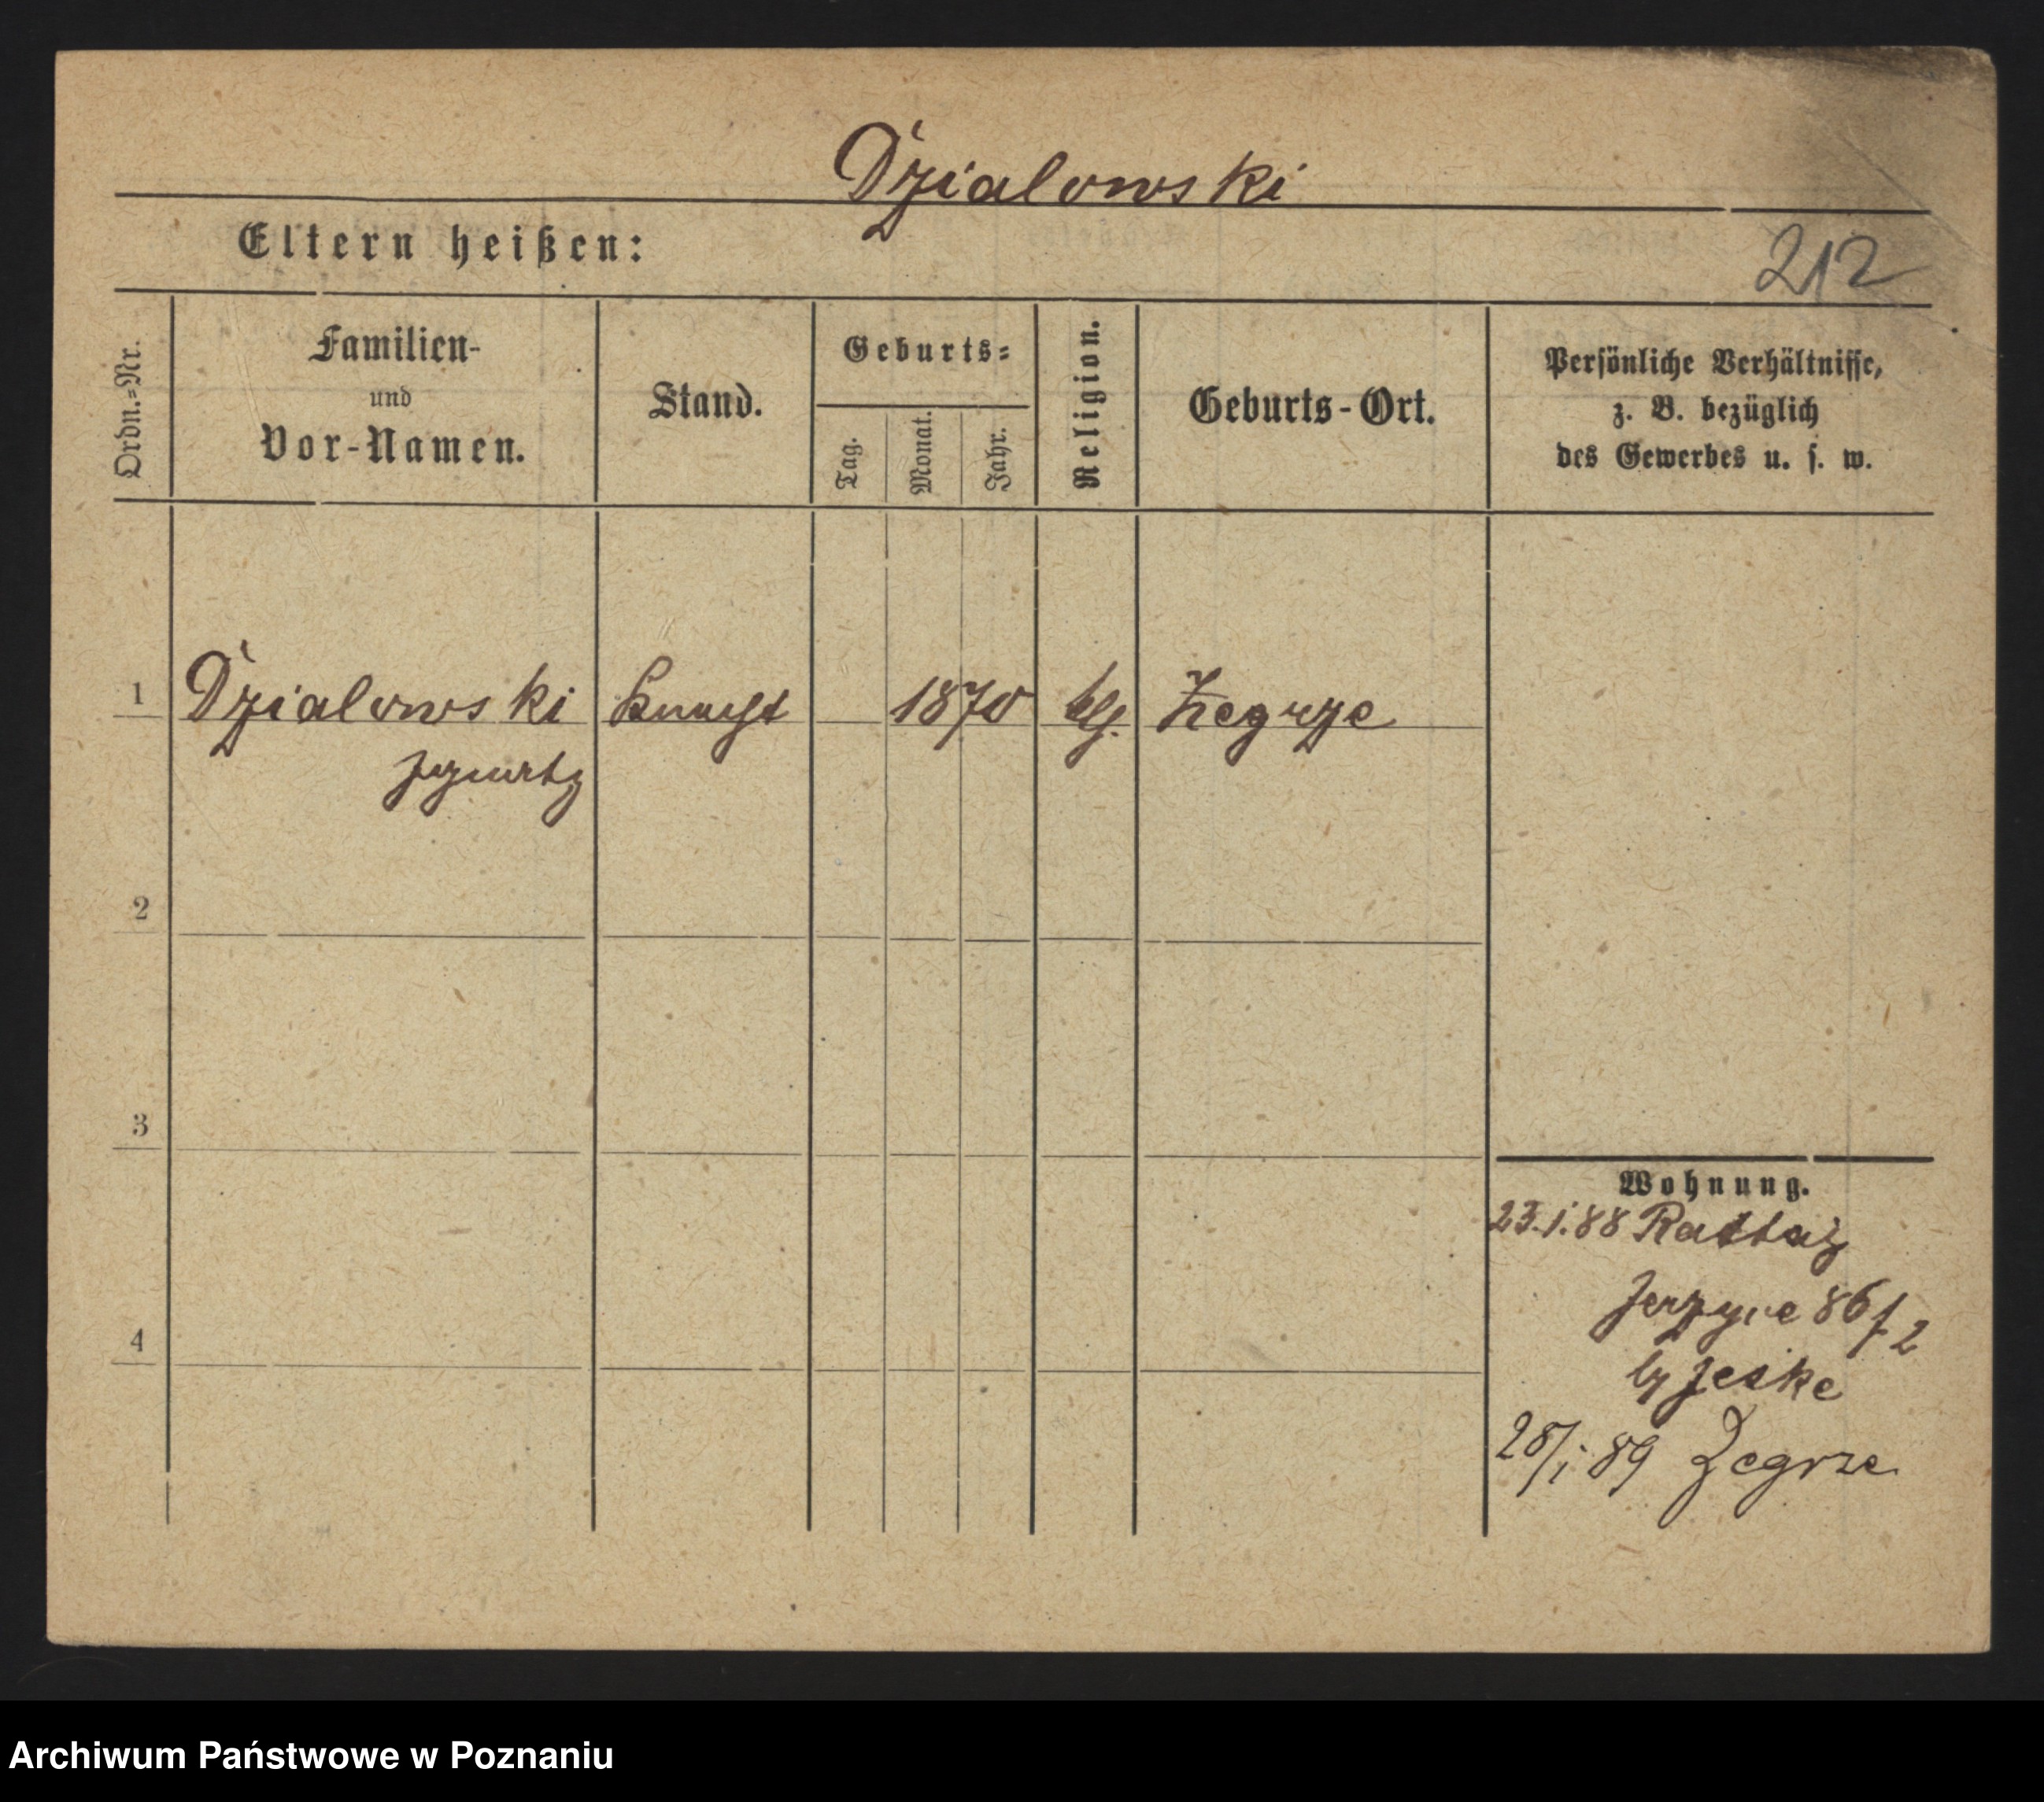 Dzialowski
Eltern heißen:
212
Ordn.-Nr.
Familien-
und
Vor-Namen.
Stand.
Geburts-
Tag.
Monat.
Jahr.
Religion.
Geburts-Ort.
Persönliche Verhältnisse,
z. B. bezüglich
des Gewerbes u. s. w.
1 Dzialowski Knecht 1870 Zegrze
2
3
4
Wohnung.
23.1.88 Rattay
Jerzyce 86 f 2
by Jeske
28/1.89 Zegrze
Archiwum Państwowe w Poznaniu